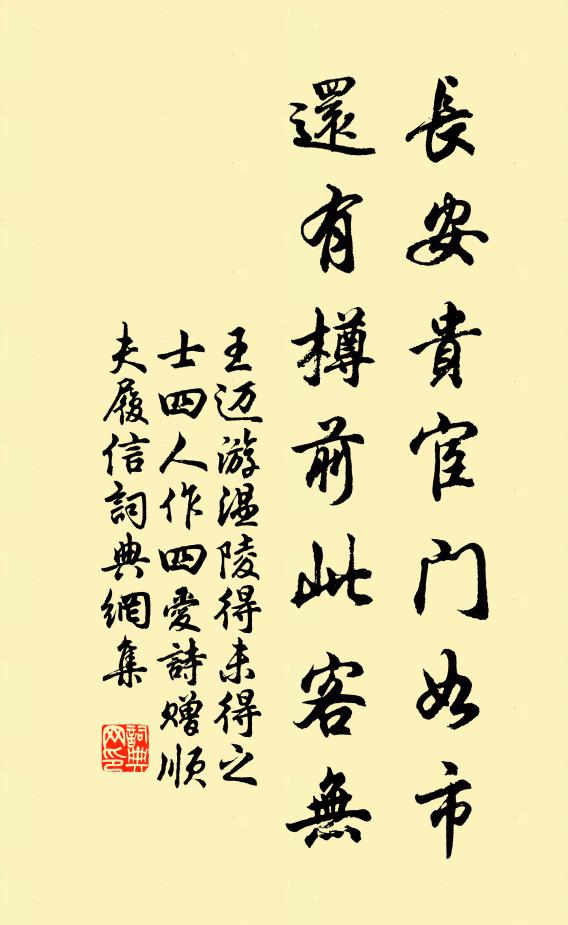 長安貴官門如市
還有樽前此客無
王迈游温陵得未得之
士四人作四爱詩赠順
夫履信詞典網集
詞典
网印